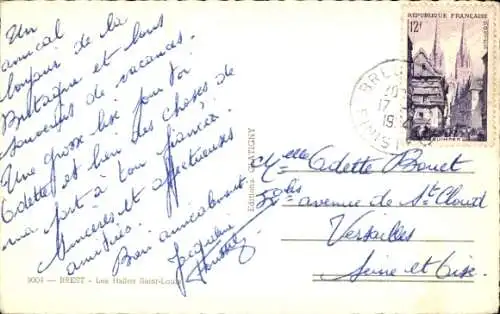 Un
amical
bonjour de la
Bretagne et bons
souvenirs de vacances.
Une grosse bise pour toi
Odette et bien des choses de
ma part à ton fiancé.
Sincères et affectueuses
amitiés.
Bien amicalement
Jacqueline
9004 — BREST - Les Halles Saint-Louis
Editions GLATIGNY
RÉPUBLIQUE FRANÇAISE
12F
QUIMPER
BREST
17
19
FINISTERE
Melle Odette Bouet
bis avenue de St Cloud
Versailles
Seine et Oise.